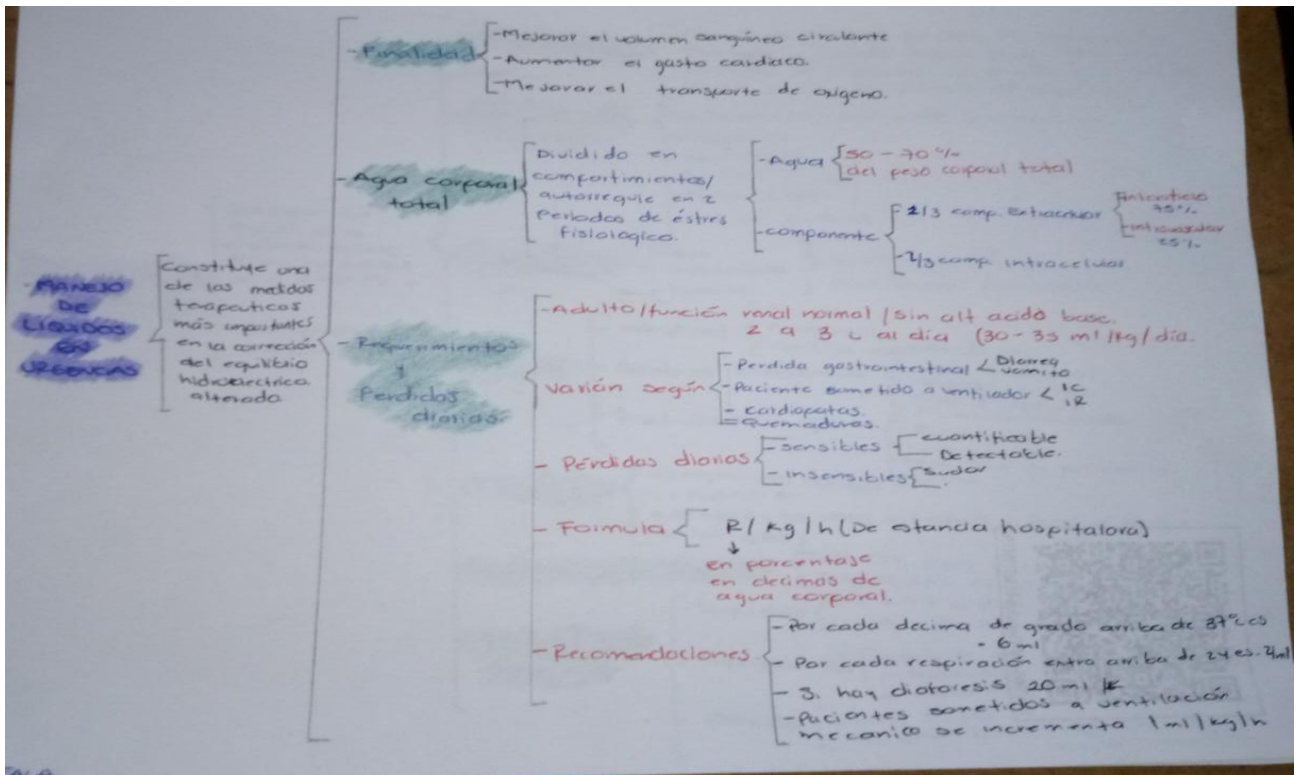 - MANEJO
DE
LIQUIDOS
EN
URGENCIAS
Constituye una
de las medidas
terapeuticas
más importantes
en la corrección
del equilibrio
hidroelectrico
alterado
- Finalidad
- Mejorar el volumen sanguíneo circulante
- Aumentar el gasto cardiaco.
- Mejorar el transporte de oxigeno.
- Agua corporal
total
Dividido en
compartimientos/
autorregule en 2
periodos de éstres
fisiologico.
- Agua
50 - 70 %
del peso corporal total
- componente
- 1/3 comp. Extracelular
Intersticio
75%
- intravascular
25%
- 2/3 comp. intracelular
- Requerimientos
y
Perdidas
diarias.
- Adulto/función renal normal / sin alt acido base.
2 a 3 L al dia (30 - 35 ml/kg/dia.
varión según
- Perdida gastrointestinal < Diarrea
vomito
- Paciente sometido a ventilador < IC
IR
- cardiopatas.
- Quemaduras.
- Pérdidas diarias
- sensibles
cuantificable
Detectable.
- insensibles
sudor
- Formula
R/ kg / h (De estancia hospitalara)
↓
en porcentaje
en decimas de
agua corporal.
- Recomendaciones
- Por cada decima de grado arriba de 37°C es
- 6 ml
- Por cada respiración extra arriba de 24 es.
- Si hay diaforesis 20 ml
- Pacientes sometidos a ventilación
mecanica se incrementa 1 ml/kg/h